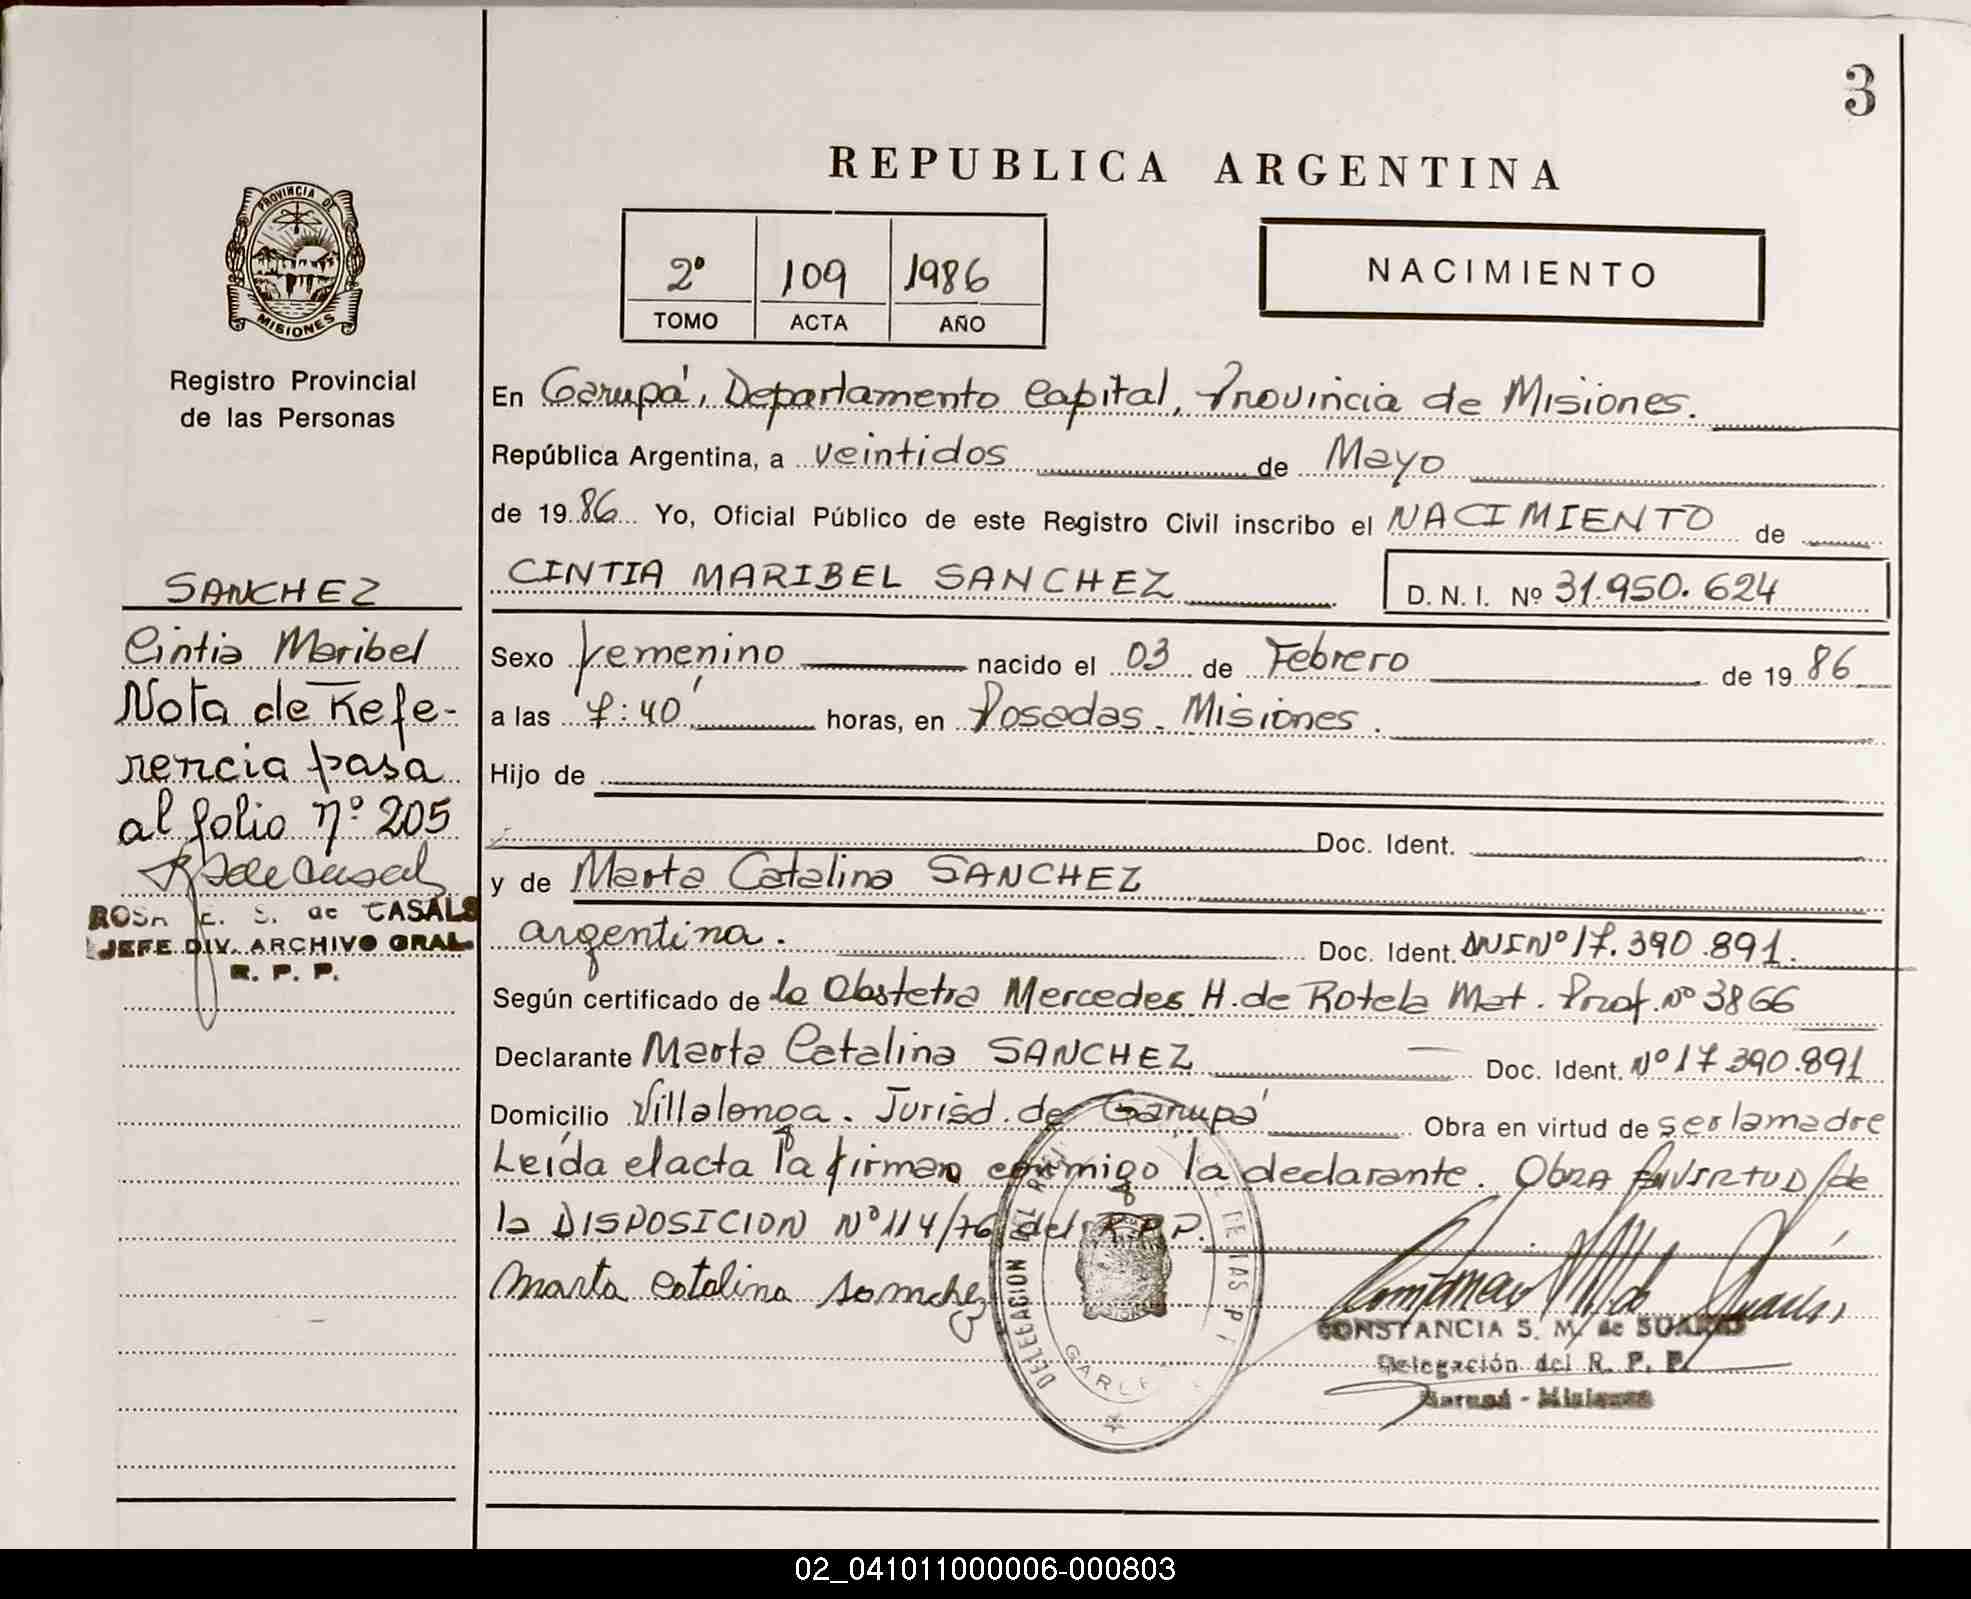 3
REPUBLICA ARGENTINA
PROVINCIA DE
MISIONES
2º 109 1986
TOMO ACTA AÑO
NACIMIENTO
Registro Provincial
de las Personas
En Garupá, Departamento Capital, Provincia de Misiones.
República Argentina, a veintidos de Mayo
de 1986 Yo, Oficial Público de este Registro Civil inscribo el NACIMIENTO de
CINTIA MARIBEL SANCHEZ D.N.I. Nº 31.950.624
Sexo femenino nacido el 03 de Febrero de 1986
a las 7:40' horas, en Posadas - Misiones.
Hijo de
Doc. Ident.
y de Marta Catalina SANCHEZ
argentina. Doc. Ident. DNI Nº 17.390.891.
Según certificado de la Obstetra Mercedes H. de Rotela Mat. Prof. Nº 3866
Declarante Marta Catalina SANCHEZ Doc. Ident. Nº 17.390.891
Domicilio Villalonga. Jurisd. de Garupá Obra en virtud de ser la madre
Leída el acta la firman conmigo la declarante. OBRA EN VIRTUD de
la DISPOSICION Nº 114/76 del R.P.P.
Marta Catalina Sanchez
CONSTANCIA S. M. de SUAREZ
Delegación del R. P. P.
Garupá - Misiones
DELEGACION DEL REG DE LAS P
GARU
SANCHEZ
Cintia Maribel
Nota de Refe-
rencia pasa
al folio nº 205
ROSA E. S. de CASALS
JEFE DIV. ARCHIVO GRAL.
R. P. P.
02_041011000006-000803